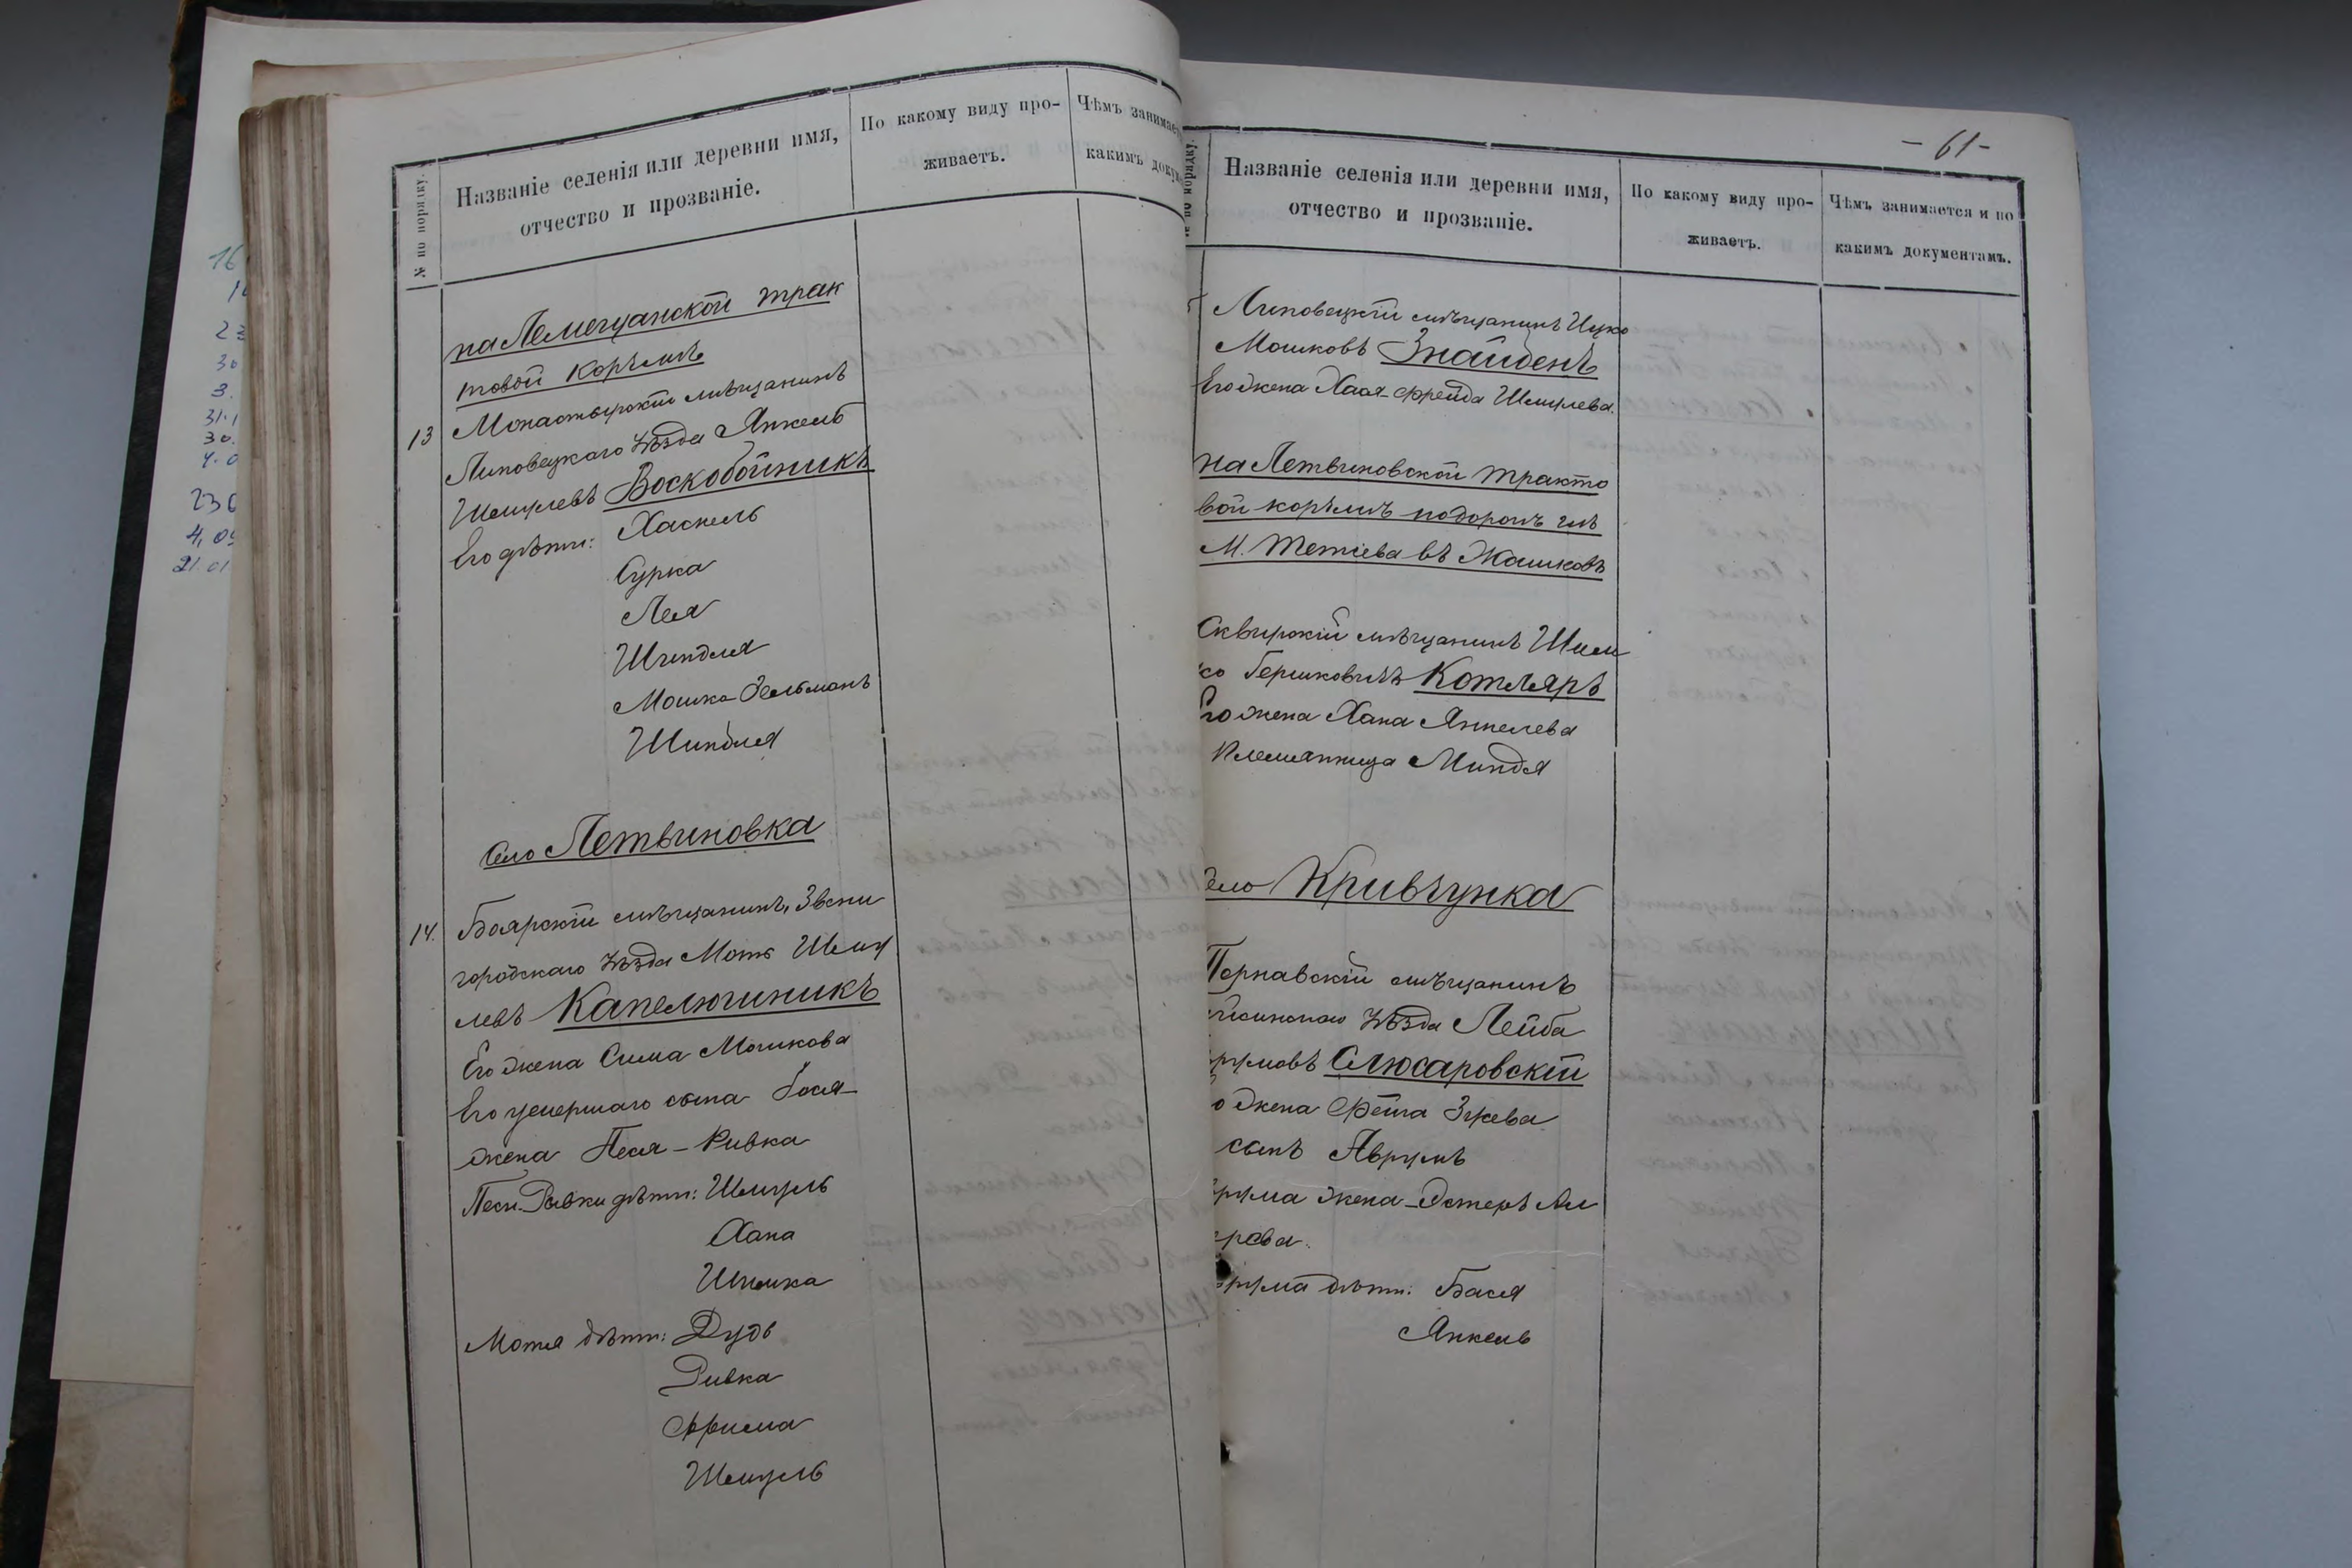 № по порядку.
Названіе селенія или деревни имя,
отчество и прозваніе.
По какому виду про-
живаетъ.
Чѣмъ занимает
какимъ доку
на Лемещанской трак
товой корчмѣ
13 Монастырскій мѣщанинъ
Липовецкаго уѣзда Янкель
Шмулевъ Воскобойникъ
Его дѣти: Хаскель
Сурка
Лея
Шиндля
Мошко-Зельманъ
Шиндля
Село Летвиновка
14. Боярскій мѣщанинъ, Звени
городскаго уѣзда Моть Шму
левъ Капелюшникъ
Его жена Сима Мошкова
Его умершаго сына Іося
жена Песя-Ривка
Песи-Ривки дѣти: Шмуль
Хана
Шлемка
Мотя дѣти: Дудь
Ривка
Фрима
Шмуль
- 61 -
Названіе селенія или деревни имя,
отчество и прозваніе.
По какому виду про-
живаетъ.
Чѣмъ занимается и по
какимъ документамъ.
Липовецкій мѣщанинъ Ицко
Мошковъ Знайденъ
Его жена Хая-Фрейда Шмулева.
на Летвиновской тракто
вой корчмѣ
М. Тетіева въ Жашковъ
Сквирскій мѣщанинъ Шлем
ко Гершковичъ Котляръ
Его жена Хана Янкелева
Племянница Миндя
Село Кривчунка
Тернавскій мѣщанинъ
уѣзда Лейба
румовъ Слюсаровскій
о жена Фейга
сынъ Аврумъ
рума жена-Эстеръ Ал
рова.
рума дѣти: Бася
Янкель
16
23
30
3.
31.1
30.
4.0
236
4,09
21.01